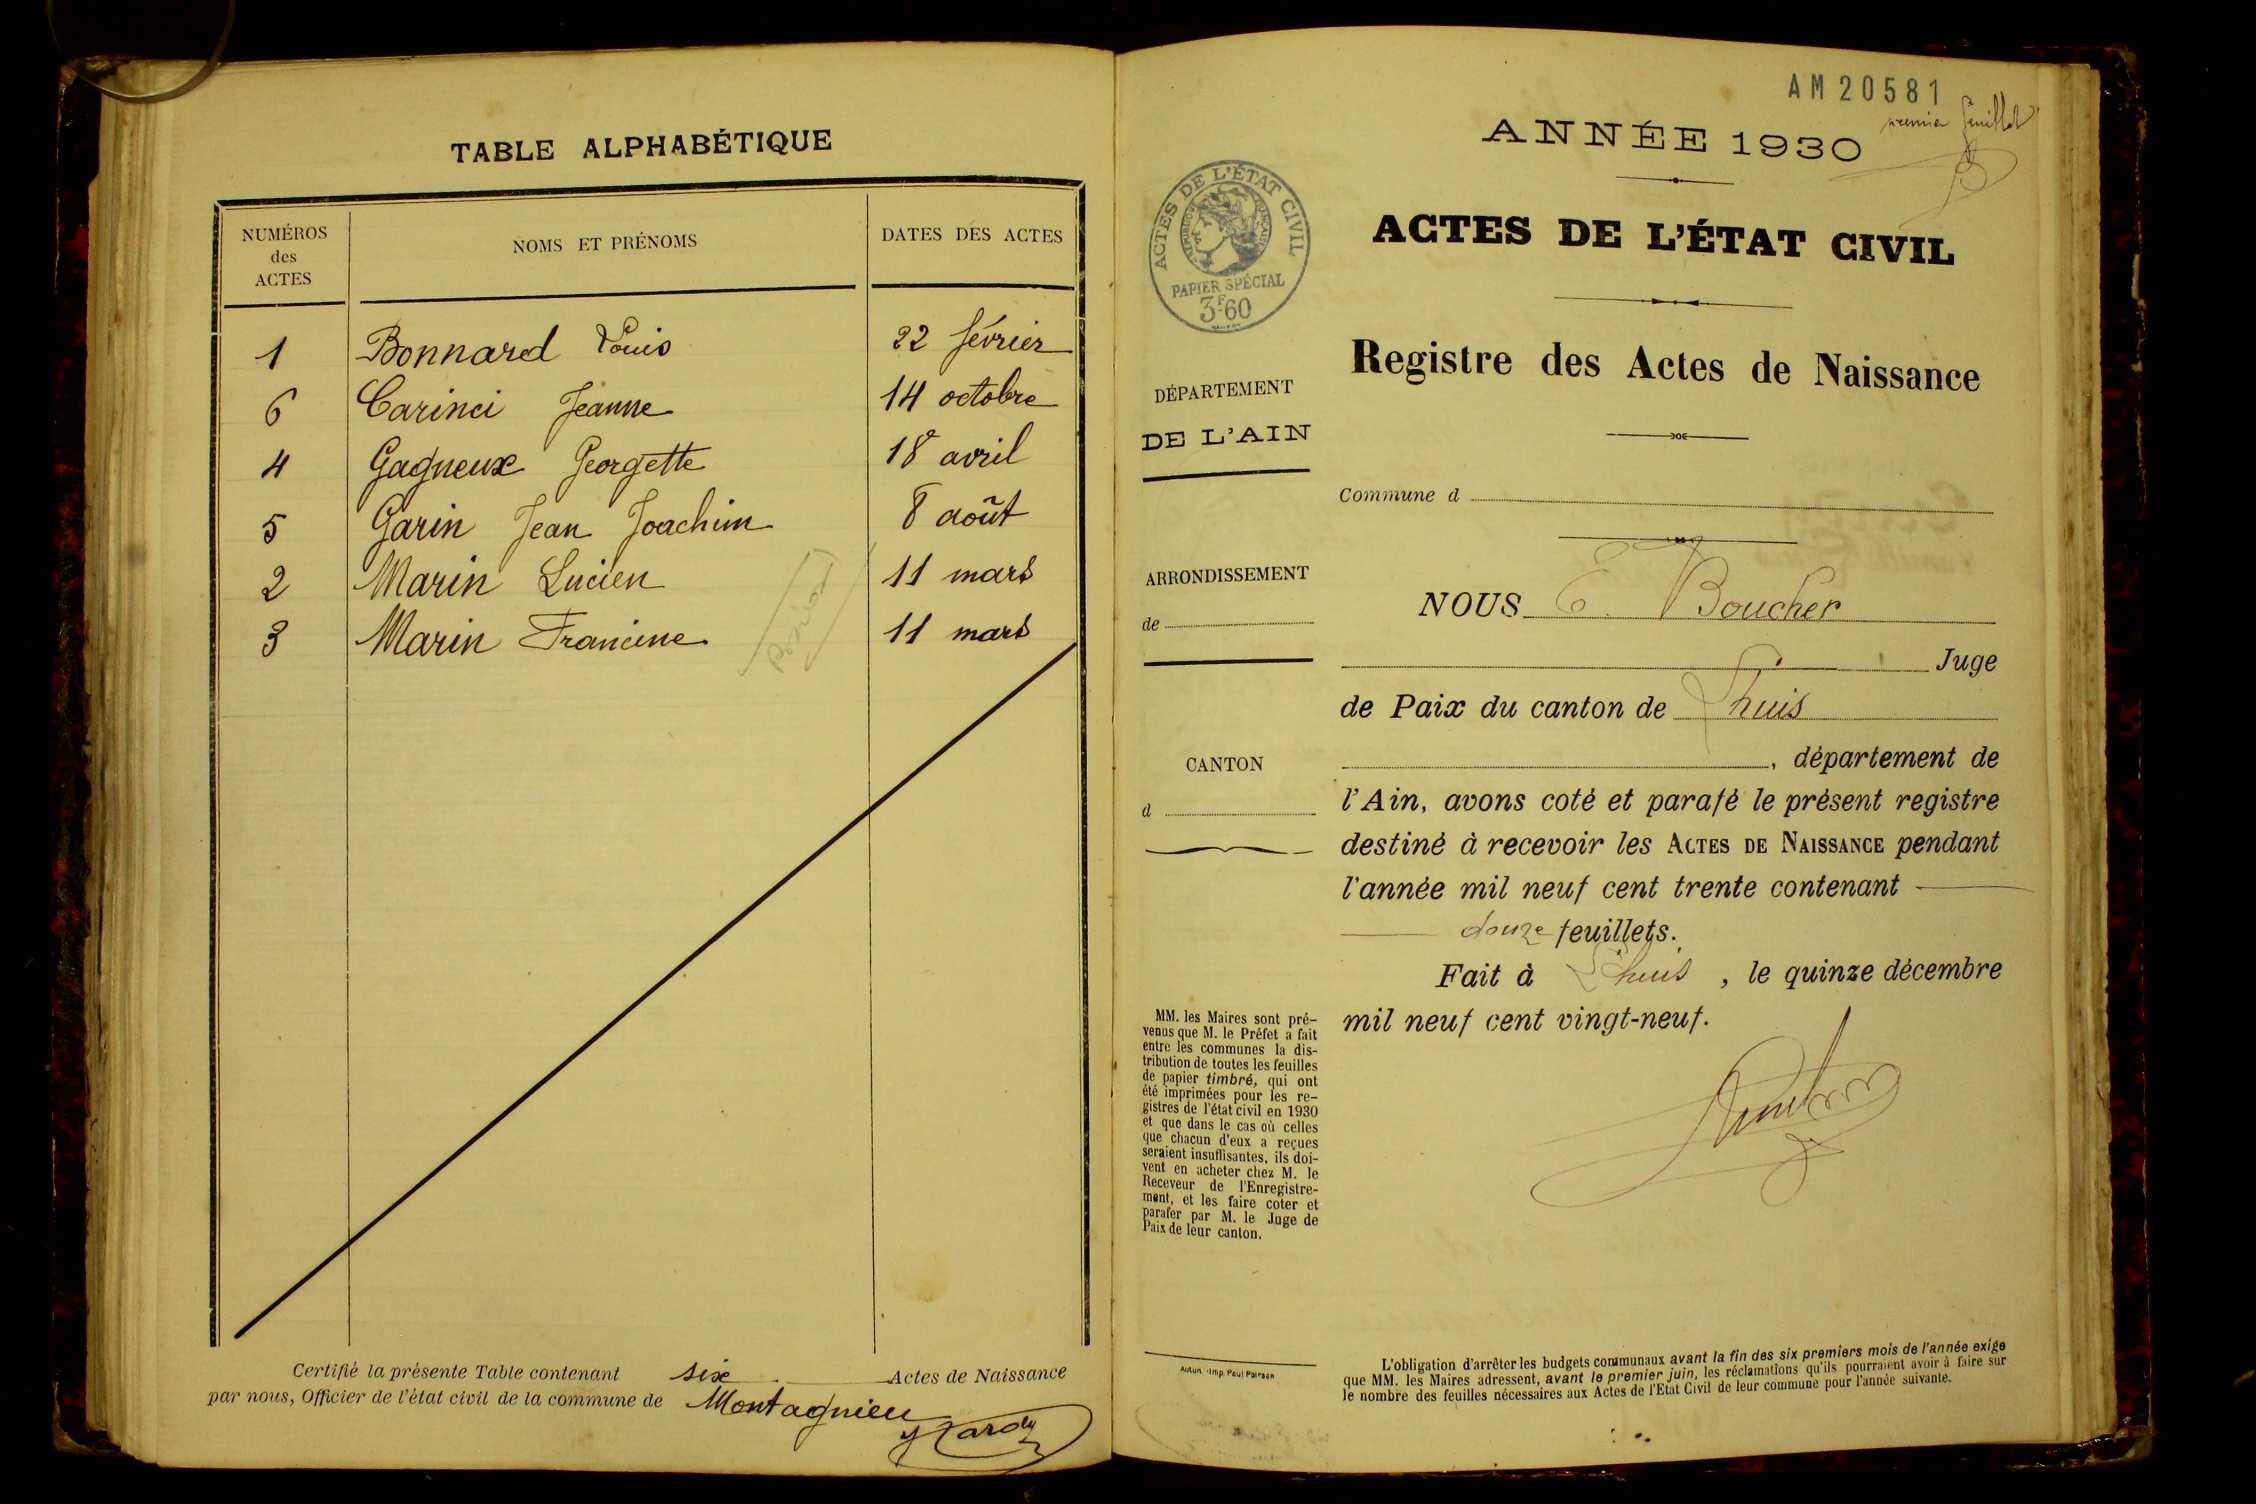 TABLE ALPHABÉTIQUE
NUMÉROS des ACTES
NOMS ET PRÉNOMS
DATES DES ACTES
1 Bonnard Louis 22 février
6 Carinci Jeanne 14 octobre
4 Gagneux Georgette 18 avril
5 Garin Jean Joachim 8 août
2 Marin Lucien 11 mars
3 Marin Francine 11 mars
Certifié la présente Table contenant six Actes de Naissance
par nous, Officier de l'état civil de la commune de Montagnieu
AM 20581
premier feuillet
ANNÉE 1930
ACTES DE L'ÉTAT CIVIL
RÉPUBLIQUE FRANÇAISE
PAPIER SPÉCIAL
3F60
ACTES DE L'ÉTAT CIVIL
Registre des Actes de Naissance
DÉPARTEMENT
DE L'AIN
ARRONDISSEMENT
de
CANTON
d
MM. les Maires sont pré-
venus que M. le Préfet a fait
entre les communes la dis-
tribution de toutes les feuilles
de papier timbré, qui ont
été imprimées pour les re-
gistres de l'état civil en 1930
et que dans le cas où celles
que chacun d'eux a reçues
seraient insuffisantes, ils doi-
vent en acheter chez M. le
Receveur de l'Enregistre-
ment, et les faire coter et
parafer par M. le Juge de
Paix de leur canton.
Commune d
NOUS E. Boucher
Juge
de Paix du canton de Lhuis
, département de
l'Ain, avons coté et parafé le présent registre
destiné à recevoir les ACTES DE NAISSANCE pendant
l'année mil neuf cent trente contenant
douze feuillets.
Fait à Lhuis, le quinze décembre
mil neuf cent vingt-neuf.
L'obligation d'arrêter les budgets communaux avant la fin des six premiers mois de l'année exige
que MM. les Maires adressent, avant le premier juin, les réclamations qu'ils pourraient avoir à faire sur
le nombre des feuilles nécessaires aux Actes de l'Etat Civil de leur commune pour l'année suivante.